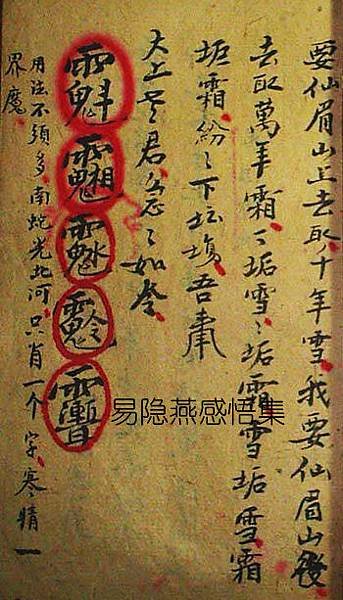 要仙眉山上去取千年雪我要仙眉山後
去取萬年霜〻垢雪〻垢霜雪垢雪霜
垢霜紛〻下坛塲吾奉
太上老君急〻如令
用法不須多南蛇光北河只肖一个字寒精一
界魔
易隐燕感悟集